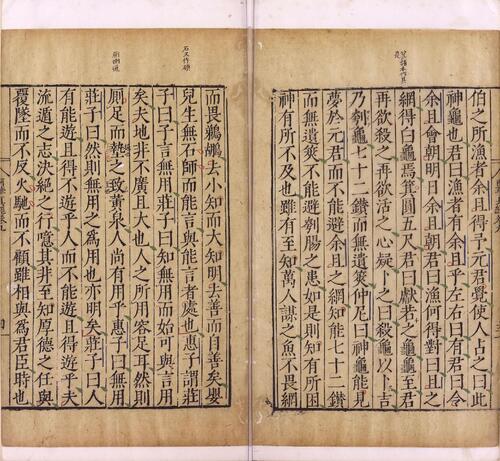 伯之所漁者余且得予元君覺使人占之曰此
神龜也君曰漁者有余且乎左右曰有君曰令
余且會朝明日余且朝君曰漁何得對曰且之
網得白龜焉箕圓五尺君曰獻若之龜龜至君
再欲殺之再欲活之心疑卜之曰殺龜以卜吉
乃刳龜七十二鑽而無遺筴仲尼曰神龜能見
夢於元君而不能避余且之網知能七十二鑽
而無遺筴不能避刳腸之患如是則知有所困
神有所不及也雖有至知萬人謀之魚不畏網
石又作碩
而畏鵜鶘去小知而大知明去善而自善矣嬰
兒生無石師而能言與能言者處也惠子謂莊
子曰子言無用莊子曰知無用而始可與言用
矣夫地非不廣且大也人之所用容足耳然則
廁足而墊之致黃泉人尚有用乎惠子曰無用
莊子曰然則無用之爲用也亦明矣莊子曰人
有能遊且得不遊乎人而不能遊且得遊乎夫
流遁之志決絕之行噫其非至知厚德之任與
覆墜而不反火馳而不顧雖相與爲君臣時也